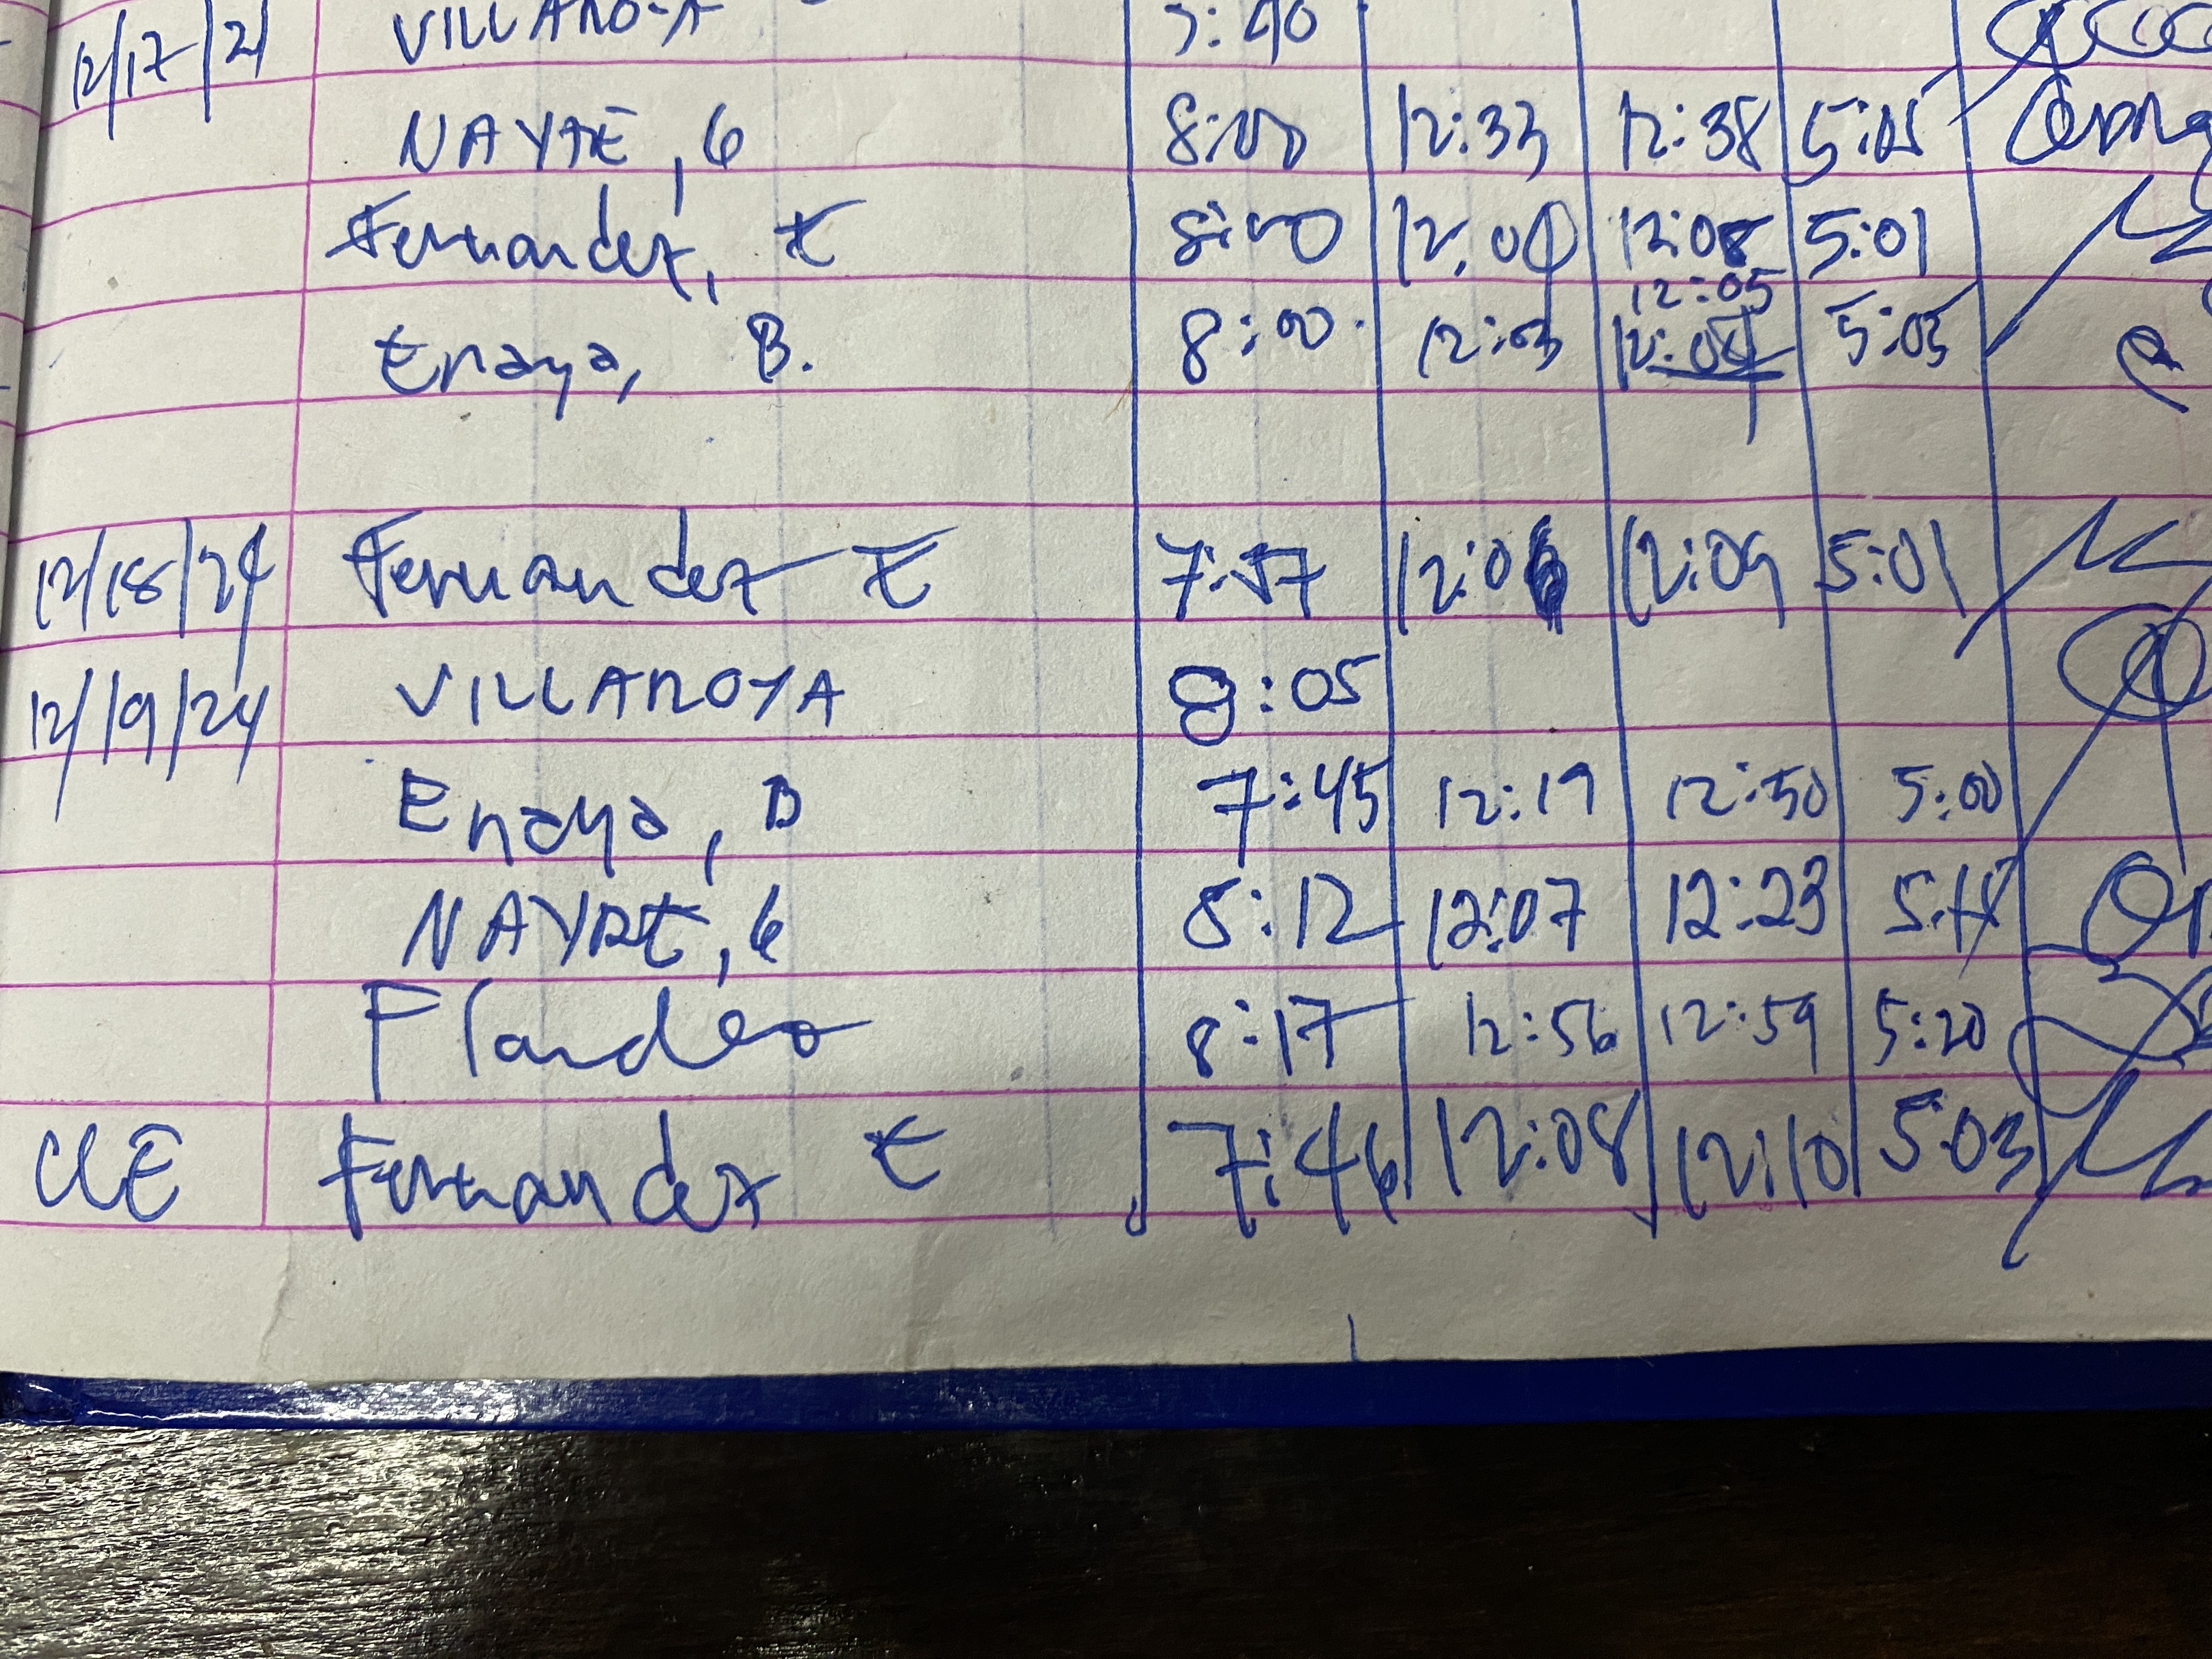 12/17/21 VILLAROYA
NAYRE, G 8:00 12:33 12:38 5:05
Fernandez, E 8:00 12:08 5:01
12:05
Enaya, B. 8:00 12:03 12:04 5:03
12/18/24 Fernandez E 7:57 12:06 12:09 5:01
12/19/24 VILLAROYA 8:05
Enaya, B 7:45 12:19 12:50 5:00
NAYRE, G 8:12 12:07 12:23 5:18
8:17 12:56 12:59 5:20
Fernandez E 7:46 12:08 12:10 5:03